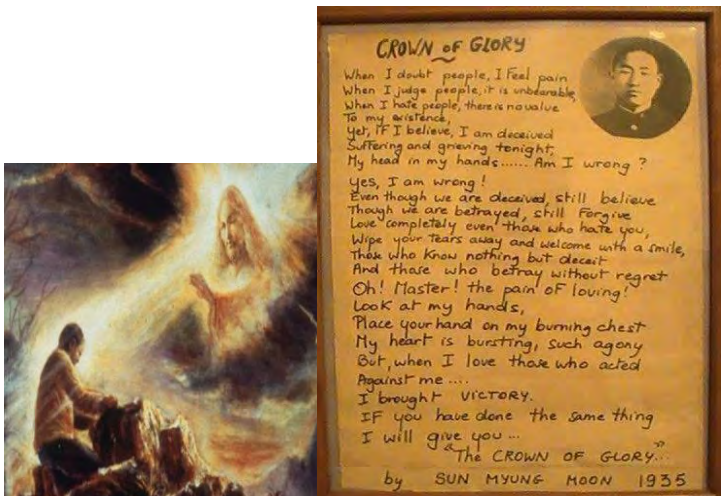 CROWN OF GLORY
When I doubt people, I feel pain
When I judge people, it is unbearable,
When I hate people, there is no value
To my existence,
Yet, IF I believe, I am deceived
Suffering and grieving tonight,
My head in my hands...... Am I wrong ?
Yes, I am wrong !
Even though we are deceived, still believe
Though we are betrayed, still Forgive
Love completely even those who hate you,
Wipe your tears away and welcome with a smile,
Those who know nothing but deceit
And those who betray without regret
Oh! Master! the pain of loving!
Look at my hands,
Place your hand on my burning chest
My heart is bursting, such agony
But, when I love those who acted
Against me ....
I brought VICTORY.
IF you have done the same thing
I will give you ...
"The CROWN OF GLORY"...
by SUN MYUNG MOON 1935